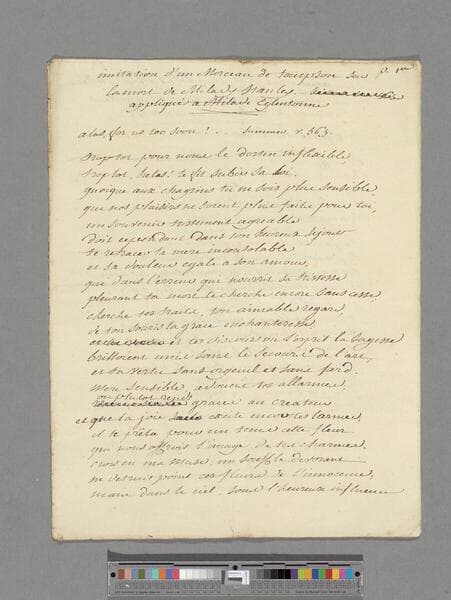 imitation d'un Morceau de tompson sur p. 1ere
la mort de Milady Stanley
appliqué a Milady Eglentonne
alas, for us too soon! .. summer v. 563.
trop tot pour nous le destin inflexible
trop tot, helas! te fit subir sa loi.
quoique aux chagrins tu ne sois plus sensible
que nos plaisirs ne soient plus faits pour toi,
un souvenir tristement agreable
doit cependant dans ton heureux sejour
te retracer ta mere inconsolable
et sa douleur egale a son amour,
que dans l'erreur qui nourrit sa tristesse
pleurant ta mort te cherche encore sans cesse
cherche tes traits, ton aimable regard,
de ton souris la grace enchanteresse,
et tes discours ou l'esprit la sagesse
brilloient unis sans le secours de l'art,
et ta vertu sans orgueil et sans fard.
Mere sensible, adoucis tes allarmes,
ou plutot rends grace au createur
et que la joie excite encor tes larmes,
il te prêta pour un tems cette fleur
qui nous offroit l'image de tes charmes,
crois en ma Muse, un souffle devorant
ne detruit point ces fleurs de l'innocence,
mais dans le ciel, sous l'heureuse influence